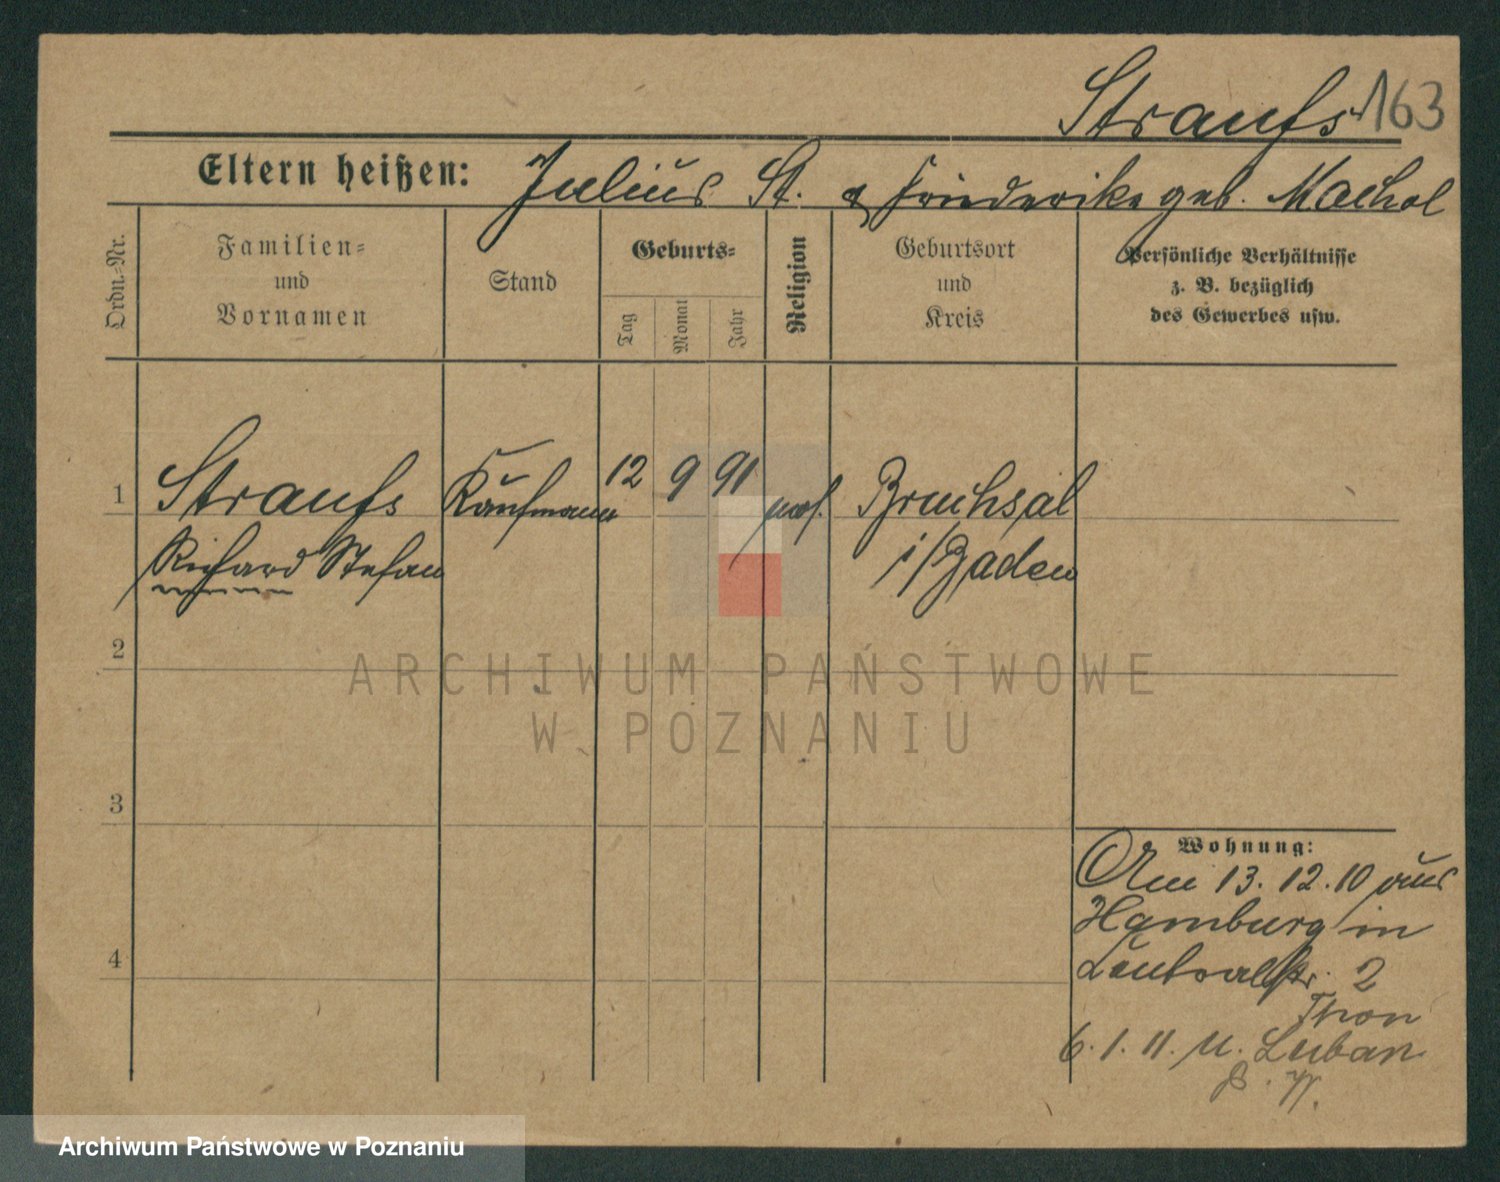 Straufs 163
Eltern heißen: Julius St. & Friederike geb. Machol
Ordn.-Nr.
Familien-
und
Vornamen
Stand
Geburts-
Tag
Monat
Jahr
Religion
Geburtsort
und
Kreis
Persönliche Verhältnisse
z. B. bezüglich
des Gewerbes usw.
1 Straufs Kaufmann 12 9 91 mos. Bruchsal
Richard Stefan i/Baden
2
ARCHIWUM PAŃSTWOWE
W POZNANIU
3
4
Wohnung:
Am 13.12.10 aus
Hamburg in
str. 2
Thon
6.1.11. n. Luban
Archiwum Państwowe w Poznaniu